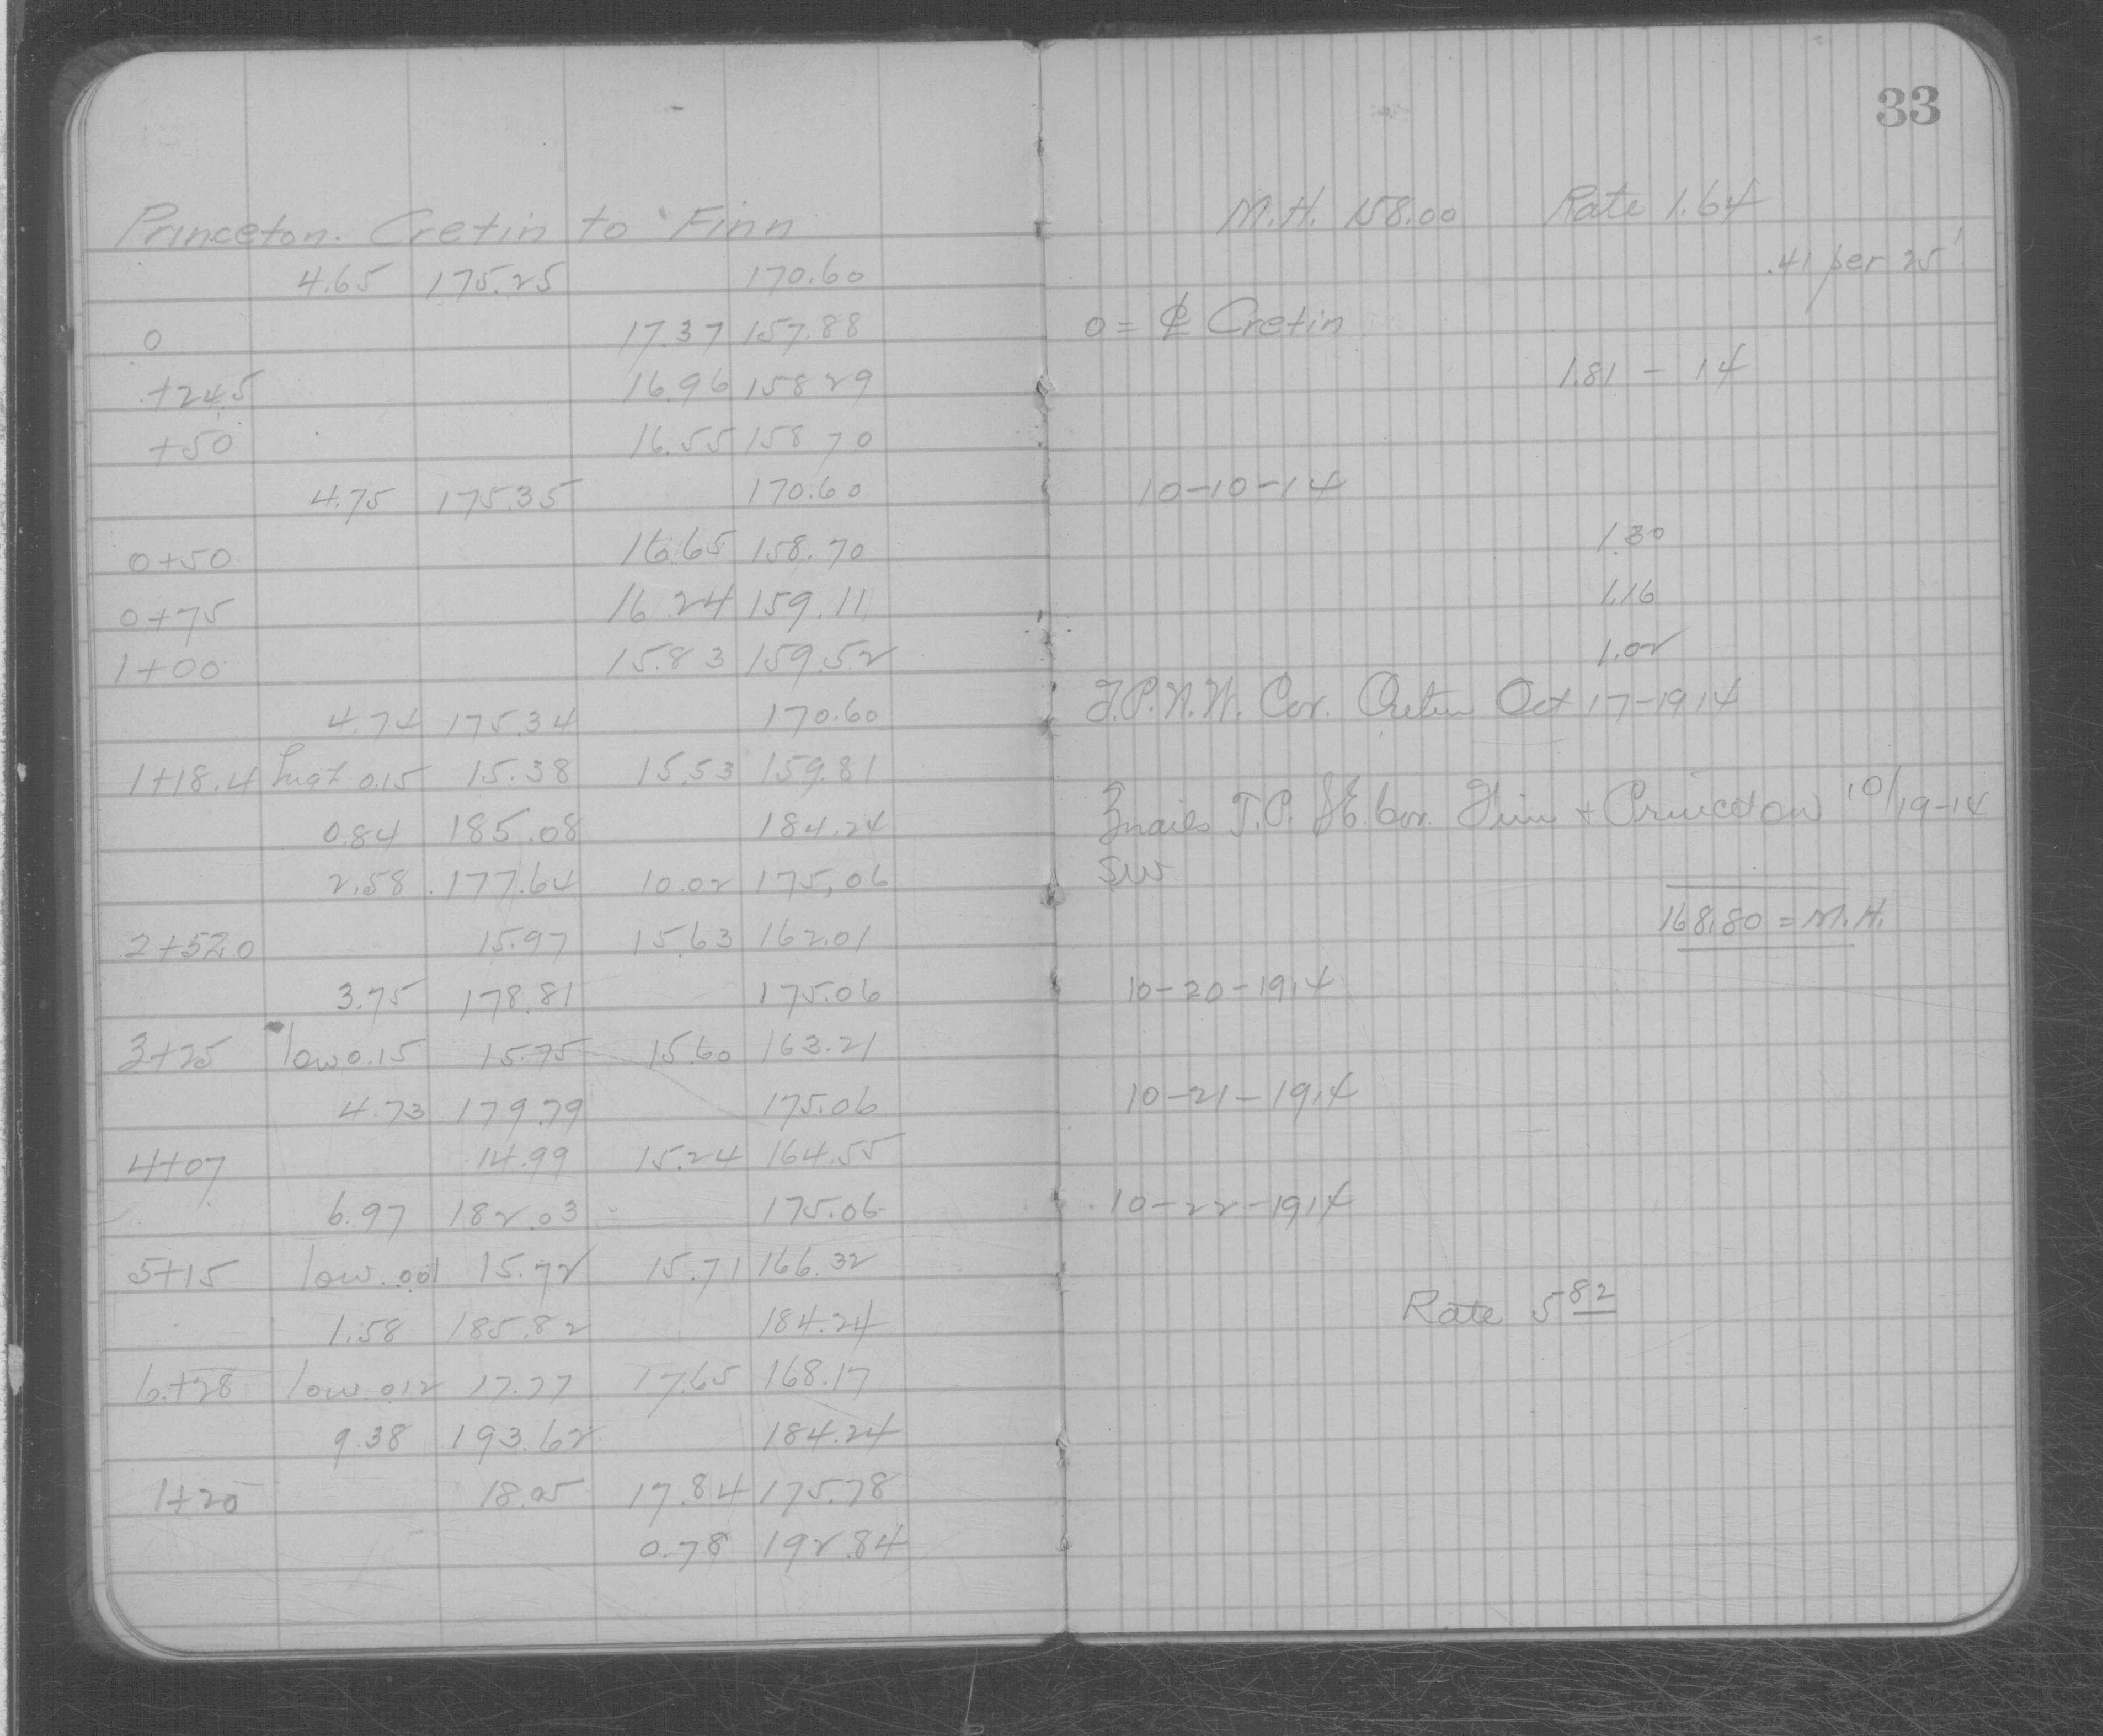 33
Princeton. Cretin to Finn
4.65 175.25 170.60
0 17.37 157.88
+24.5 16.96 158 29
+50 16.55 158 70
4.75 175.35 170.60
0+50 16.65 158.70
0+75 16.24 159.11
1+00 15.83 159.52
4.74 175.34 170.60
1+18.4 0.15 15.38 15.53 159.81
0.84 185.08 184.24
2.58 177.64 10.02 175.06
2+52.0 15.97 15.63 162.01
3.75 178.81 175.06
3+25 low 0.15 15.75 15.60 163.21
4.73 179.79 175.06
4+07 14.99 15.24 164.55
6.97 182.03 175.06
5+15 low .001 15.72 15.71 166.32
1.58 185.82 184.24
6+28 low 012 17.77 17.65 168.17
9.38 193.62 184.24
1+20 18.05 17.84 175.78
0.78 192.84
M.H. 158.00 Rate 1.64
.41 per 25'
0 = ℄ Cretin
1.81 - 14
10-10-14
1.30
1.16
1.02
T.P. N.W. Cor. Cretin Oct 17-1914
3 nails T.P. SE. Cor. Finn + Princeton 10/19-14
SW
168.80 = M.H.
10-20-1914
10-21-1914
10-22-1914
Rate 5 82